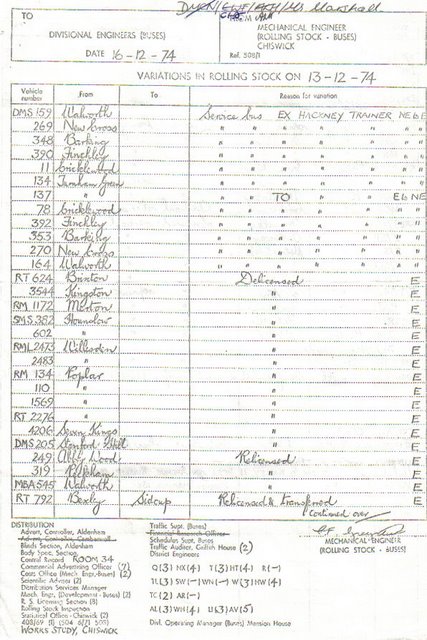 TO
Marshall
DIVISIONAL ENGINEERS (BUSES)
DATE 16-12-74
FROM
MECHANICAL ENGINEER
(ROLLING STOCK - BUSES)
CHISWICK
Ref. 508/1
VARIATIONS IN ROLLING STOCK ON 13-12-74
Vehicle number From To Reason for variation
DMS 159 Walworth Service bus EX HACKNEY TRAINER NE & E
269 New Cross " " " " " " "
348 Barking " " " " " " "
390 Finchley " " " " " " "
11 Cricklewood " " " " " " "
134 Turnham Green " " " " " " "
137 " " " TO " " E & NE
78 Cricklewood " " " " " " "
392 Finchley " " " " " " "
353 Barking " " " " " " "
270 New Cross " " " " " " "
164 Walworth " " " " " " "
RT 624 Brixton Delicensed E
3544 Kingston " E
RM 1172 Merton " E
SMS 382 Hounslow " E
602 " " E
RML 2473 Willesden " E
2483 " " E
RM 134 Poplar " E
110 " " E
1569 " " E
RT 2276 " " E
4206 Seven Kings " E
DMS 205 Stamford Hill " E
249 Abbey Wood Relicensed E
319 Peckham " E
MBA 545 Walworth " E
RT 792 Bexley Sidcup Relicensed & transferred E
Continued over
DISTRIBUTION
Advert. Controller, Aldenham
Advert. Controller, Camberwell
Bldgs Section, Aldenham
Body Spec. Section
Central Record ROOM 34
Commercial Advertising Officer (7)
Costs Office (Mech. Engr.-Buses) (2)
Scientific Adviser (2)
Distribution Services Manager
Mech. Engr. (Development - Buses) (2)
R. S. Licensing Section (3)
Rolling Stock Inspection
Surgical Office - Chiswick (2)
WORKS STUDY, CHISWICK
Traffic Supt. (Buses)
Financial Research Officer
Schedules Supt. Buses
Traffic Auditor, Griffith House (2)
District Engineers
Q(3) NX(4) T(3) HT(4) R(-)
TL(3) SW(-) WN(-) W(3) HW(4)
TC(2) AR(-)
AL(3) WH(4) U(3) AV(5)
Divl. Operating Manager (Buses) Mansion House
MECHANICAL ENGINEER
(ROLLING STOCK - BUSES)